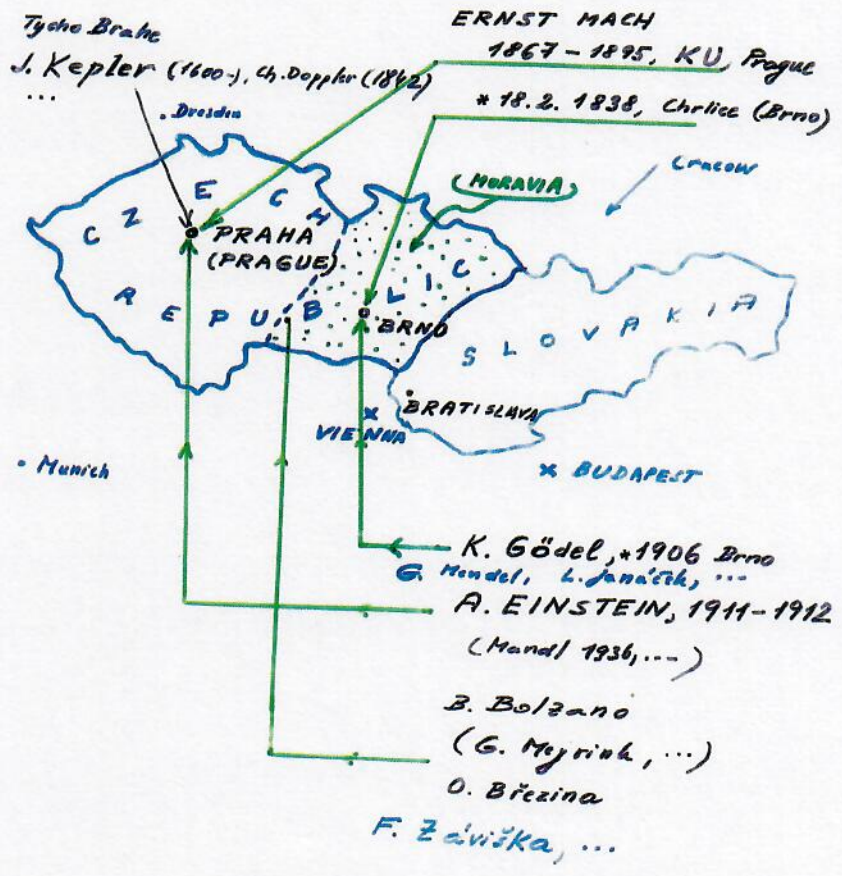 Tycho Brahe
J. Kepler (1600-), Ch. Doppler (1842)
...
ERNST MACH
1867-1895, KU, Prague
* 18.2. 1838, Chrlice (Brno)
. Dresden
MORAVIA
Cracow
CZECH
REPUBLIC
PRAHA
(PRAGUE)
BRNO
SLOVAKIA
BRATISLAVA
VIENNA
Munich
BUDAPEST
K. Gödel, *1906 Brno
G. Mendel, L. Janáček, ...
A. EINSTEIN, 1911-1912
(Mandl 1936, ...)
B. Bolzano
(G. Mejrink, ...)
O. Březina
F. Záviška, ...